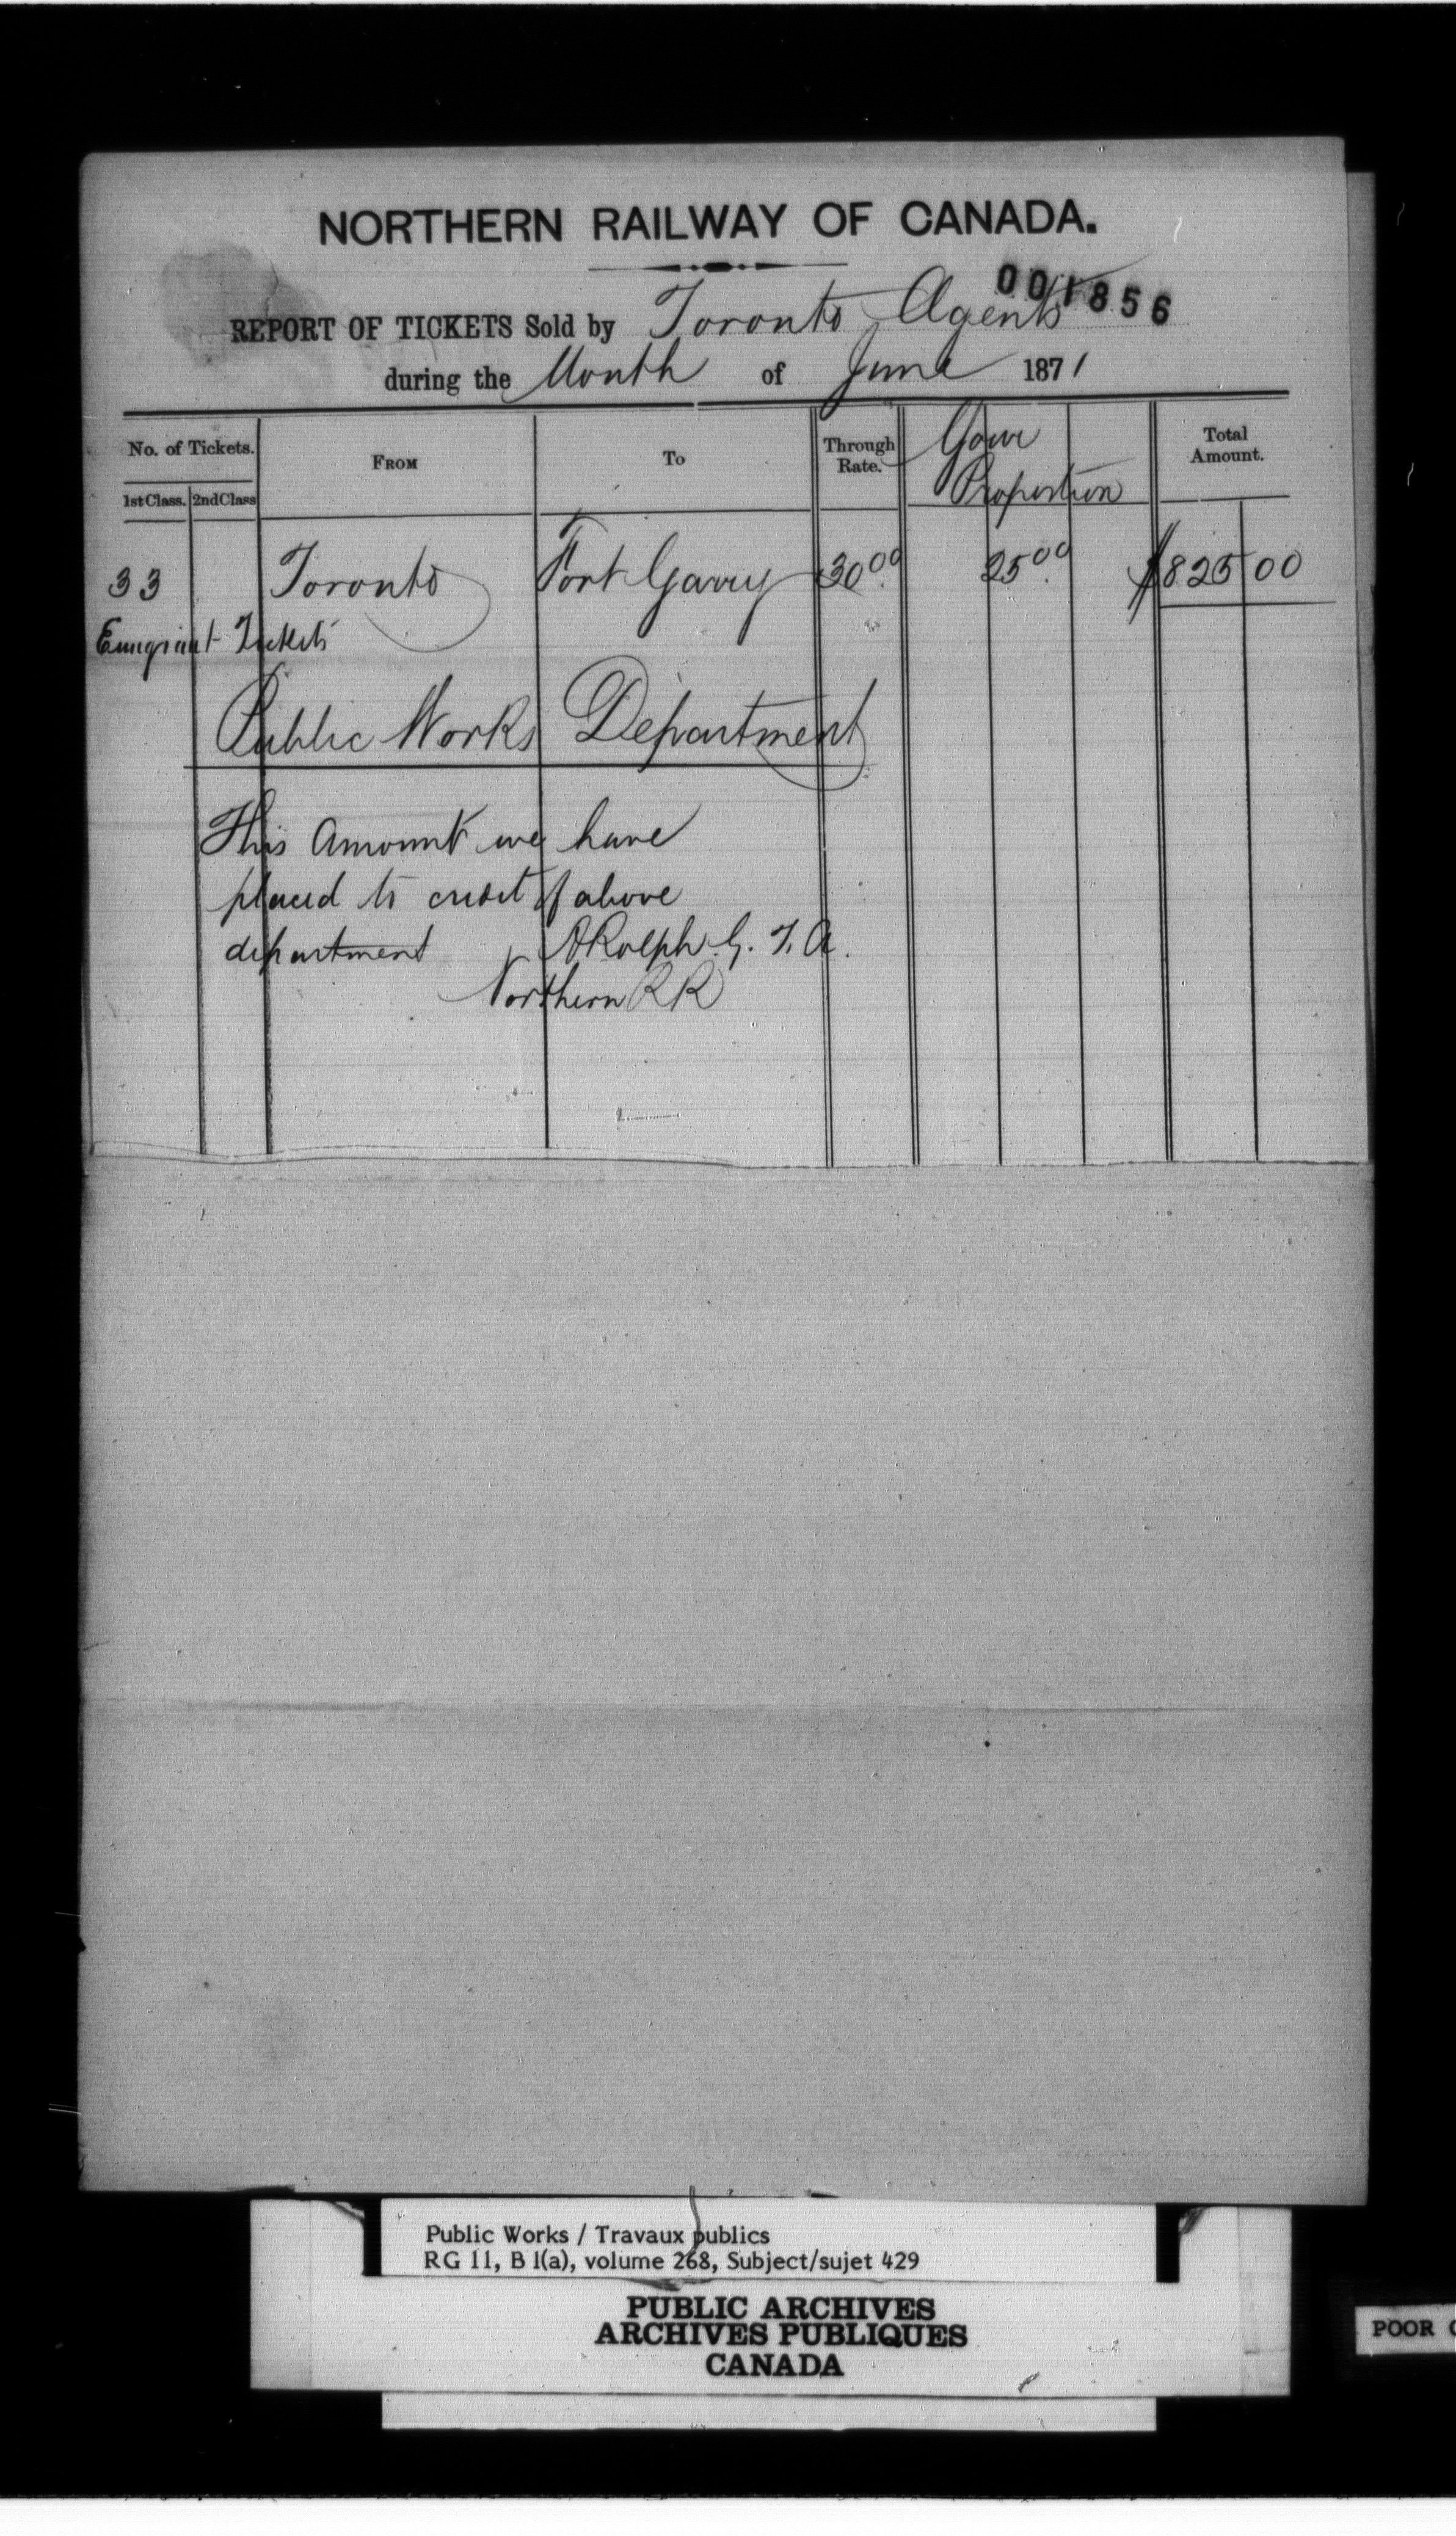 NORTHERN RAILWAY OF CANADA.
001856
REPORT OF TICKETS Sold by Toronto Agents
during the Month of June 1871
No. of Tickets.
1st Class. 2nd Class
FROM
To
Through Rate.
Your Proportion
Total Amount.
33 Toronto Fort Garry 30 00 25 00 $825 00
Emigrant Tickets
Public Works Department
This Amount we have
placed to credit of above
department ARolph G. T. A.
Northern RR
Public Works / Travaux publics
RG 11, B 1(a), volume 268, Subject/sujet 429
PUBLIC ARCHIVES
ARCHIVES PUBLIQUES
CANADA
POOR